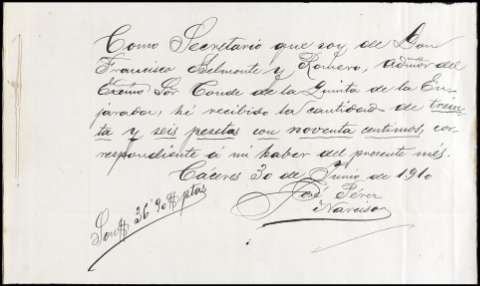 Como Secretario que soy de Don
Francisco Belmonte y Romero, Admor del
Excmo Sor Conde de la Quinta de la En-
jarada, hé recibido la cantidad de trein-
ta y seis pesetas con noventa centimos, cor-
respondiente á mi haber del presente més.
Cáceres 30 de Junio de 1910
José Pérez
Narciso
Son 36'90 ptas